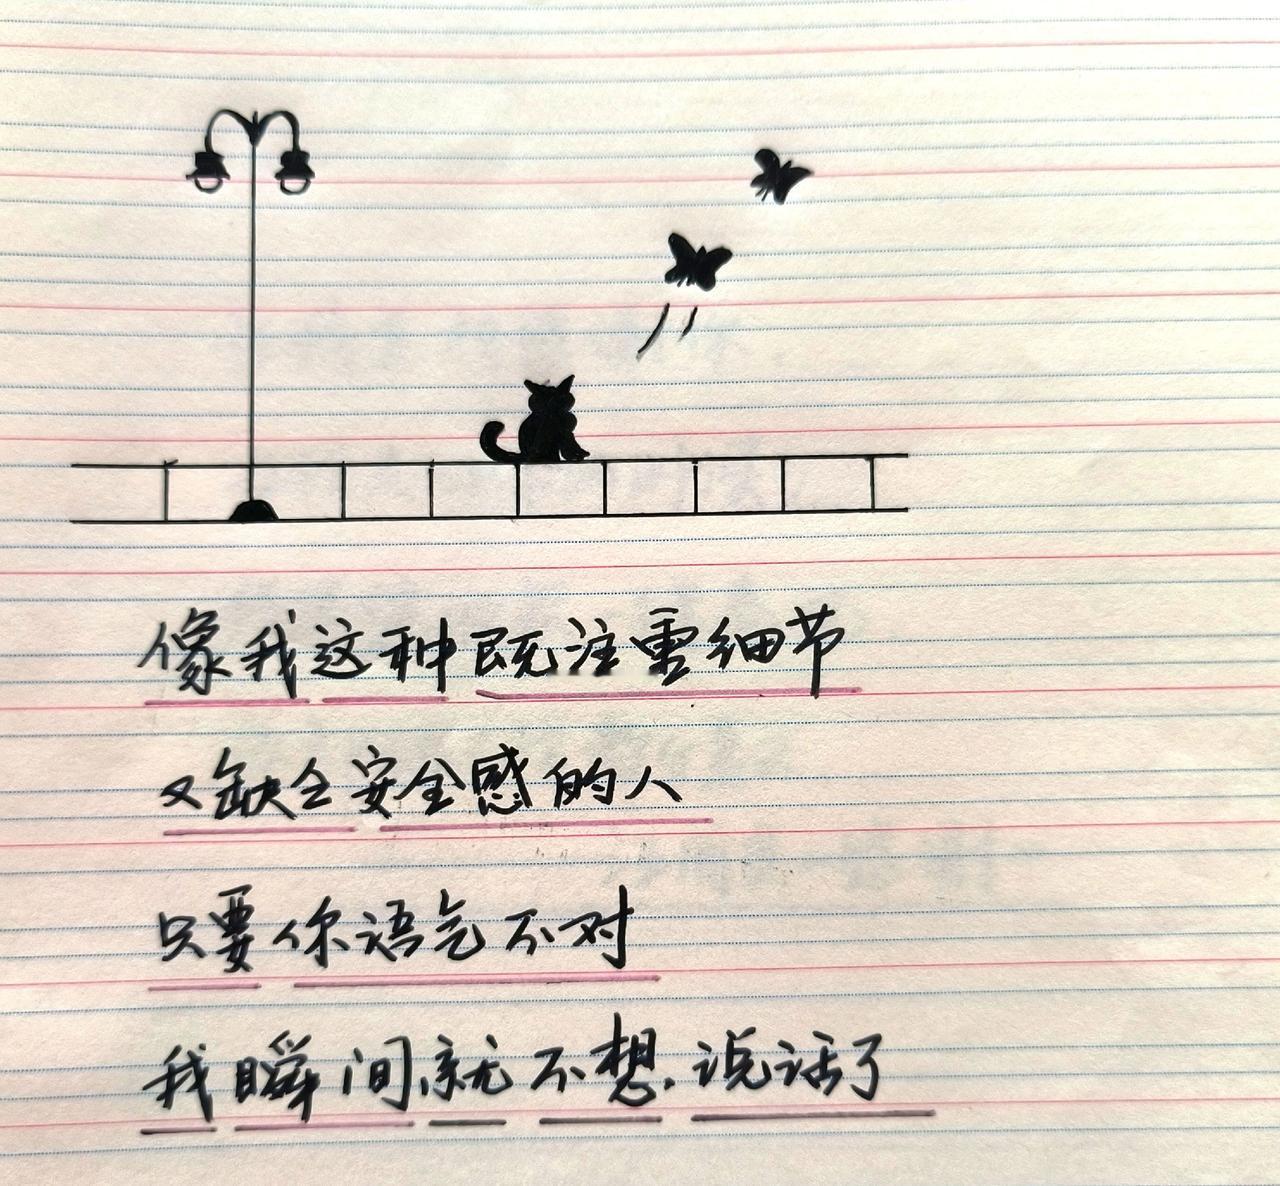 像我这种既注重细节
又缺乏安全感的人
只要你语气不对
我瞬间就不想说话了